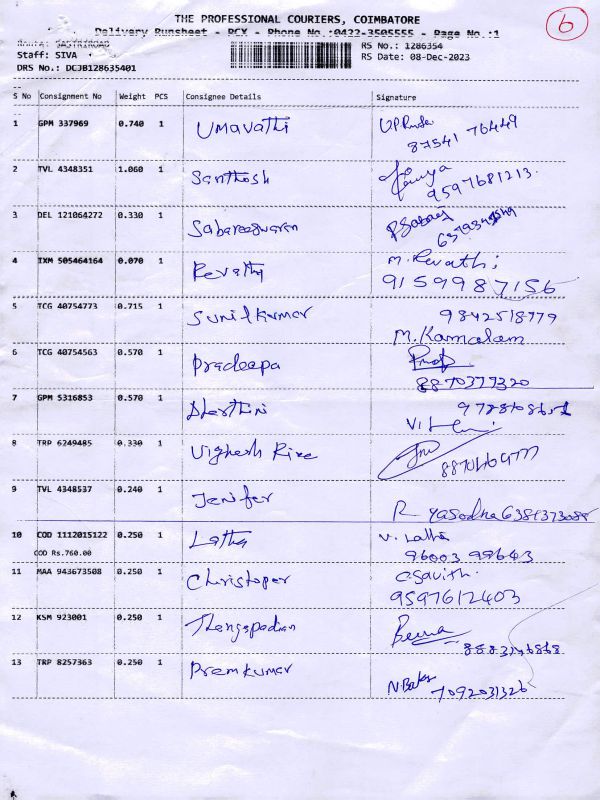 6
THE PROFESSIONAL COURIERS, COIMBATORE
Delivery Runsheet - PCX - Phone No.:0422-3505555 - Page No.:1
RS No.: 1286354
Staff: SIVA
RS Date: 08-Dec-2023
DRS No.: DCJB128635401
S No Consignment No Weight PCS Consignee Details Signature
1 GPM 337969 0.740 1 Umavathi
87541 76449
2 TVL 4348351 1.060 1 Santhosh
9597681213.
3 DEL 121064272 0.330 1 Sabareeswaran
4 IXM 505464164 0.070 1 Revathy M. Revathi;
9159987156
5 TCG 40754773 0.715 1 Sunilkumar 9842518779
M. Kamalam
6 TCG 40754563 0.570 1 Pradeepa
8870377320
7 GPM 5316853 0.570 1
8 TRP 6249485 0.330 1 Vighesh
9 TVL 4348537 0.240 1 Jenifer R yasodha 6381373088
10 COD 1112015122 0.250 1 Latha V. Latha
COD Rs.760.00 96003 99643
11 MAA 943673508 0.250 1 Christoper
9597612403
12 KSM 923001 0.250 1 Thengapadian
13 TRP 8257363 0.250 1 Premkumar
7092031326